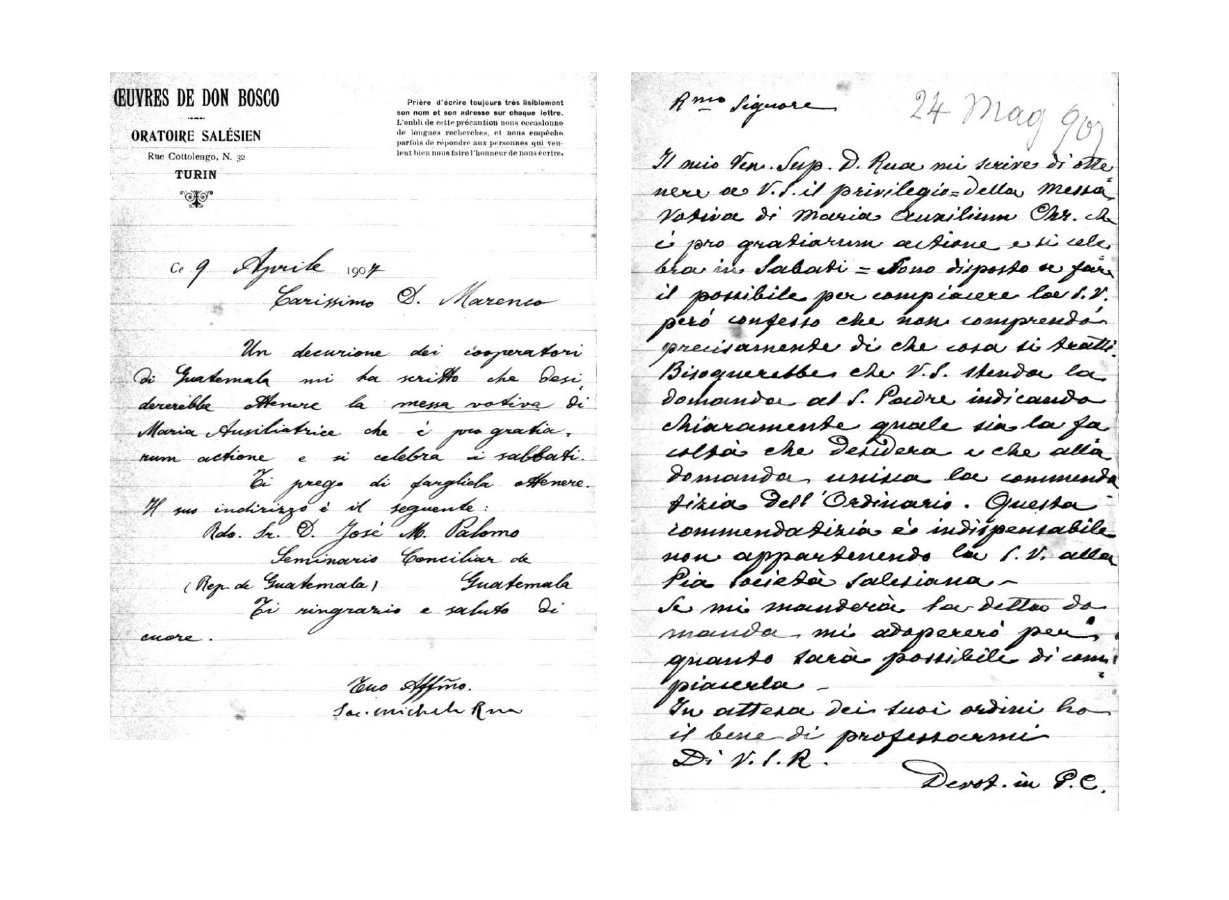 ŒUVRES DE DON BOSCO
ORATOIRE SALÉSIEN
Rue Cottolengo, N. 32
TURIN
Prière d'écrire toujours très lisiblement
son nom et son adresse sur chaque lettre.
L'oubli de cette précaution nous occasionne
de longues recherches, et nous empêche
parfois de répondre aux personnes qui veu-
lent bien nous faire l'honneur de nous écrire.
Ce 9 Aprile 1907
Carissimo D. Marenco
Un decurione dei cooperatori
di Guatemala mi ha scritto che desi
dererebbe ottenere la messa votiva di
Maria Ausiliatrice che è pro gratia-
rum actione e si celebra i sabbati.
Ti prego di fargliela ottenere.
Il suo indirizzo è il seguente:
Rdo. Sr. D. José M. Palomo
Seminario Conciliar de
(Rep. de Guatemala) Guatemala
Ti ringrazio e saluto di
cuore.
Tuo Affmo.
Sac. Michele Rua
Rmo Signore
24 Mag 907
Il mio Ven. Sup. D. Rua mi scrive di otte
nere a V.S. il privilegio = della Messa
votiva di Maria Auxilium Chr. che
è pro gratiarum actione e si cele
bra in Sabati = Sono disposto se fare
il possibile per compiacere la S.V.
però confesso che non comprendo
precisamente di che cosa si tratti.
Bisognerebbe che V.S. stenda la
domanda al S. Padre indicando
chiaramente quale sia la fa
coltà che desidera e che alla
domanda unisca la commenda
tizia dell'Ordinario. Questa
commendatizia è indispensabile
non appartenendo la S.V. alla
Pia Società Salesiana -
Se mi manderà la detta do
manda mi adopererò per
quanto sarà possibile di com
piacerla -
In attesa dei suoi ordini ho
il bene di professarmi
Di V.S.R.
Devot. in G.C.